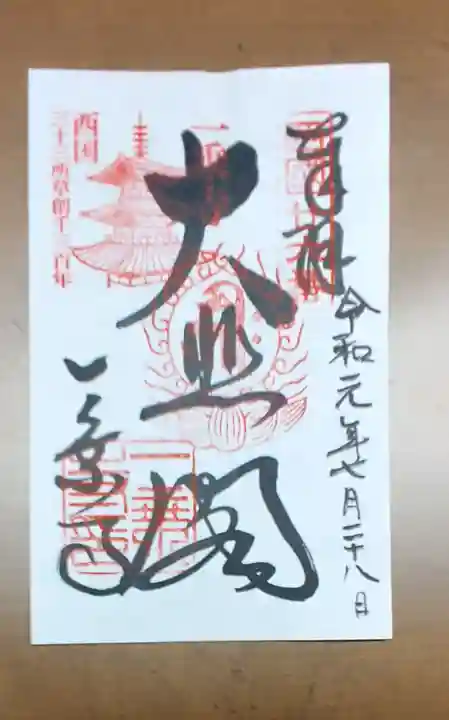 奉拝
令和元年七月二十八日
大悲閣
一乗寺
西国
三十三所草創千三百年